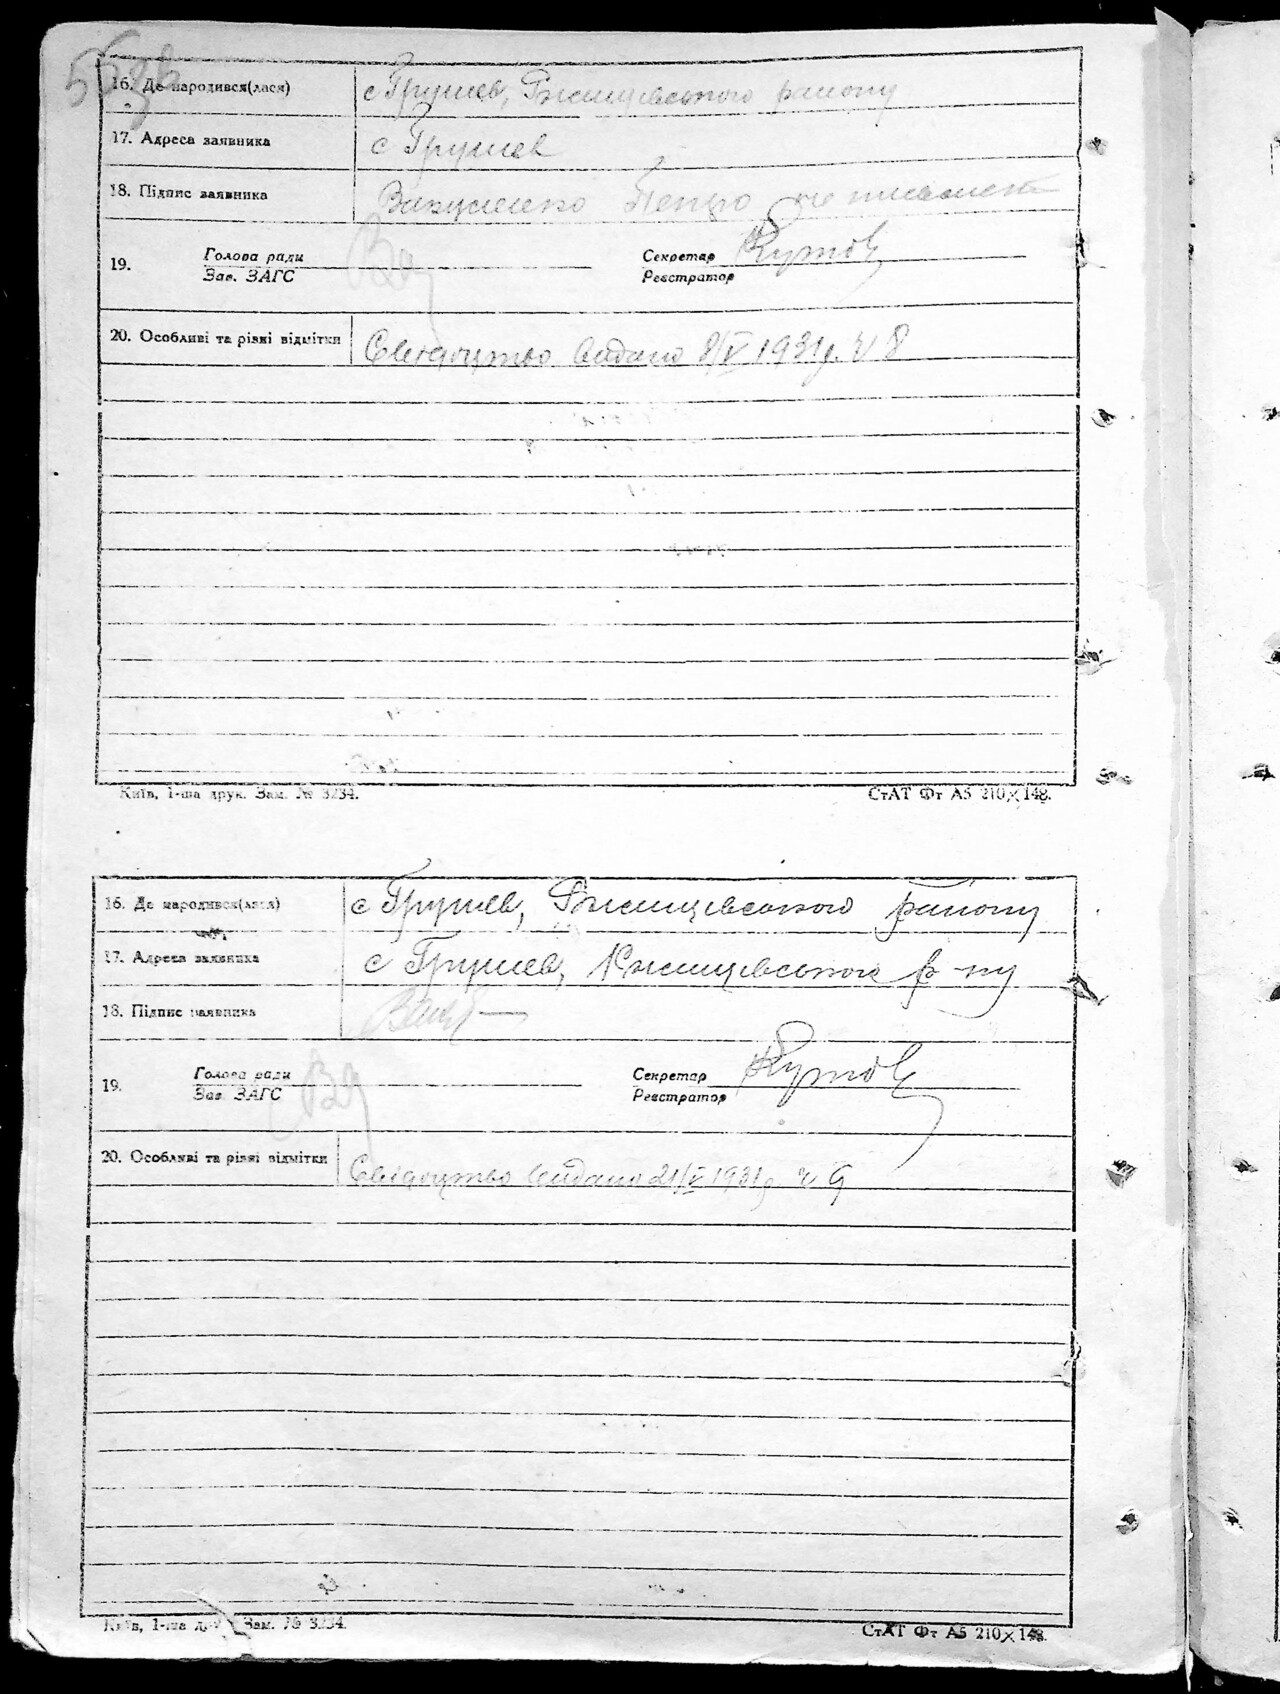 16. Де народився(лася) с Грушев, Ржищевського району
17. Адреса заявника с Грушев
18. Підпис заявника Вакуленко Петро не писмен
19. Голова ради Секретар
Зав. ЗАГС Реєстратор
20. Особливі та різні відмітки Свідоцтво видано 8/V 1931р. ч 8
Київ, 1-ша друк. Зам. № 3234. СтАТ Фт А5 210×148.
16. Де народився(лася) с Грушев, Ржищевського району
17. Адреса заявника с Грушев, Ржищевського р-ну
18. Підпис заявника
19. Голова ради Секретар
Зав. ЗАГС Реєстратор
20. Особливі та різні відмітки Свідоцтво видано 21/V 1931р ч 9
Київ, 1-ша друк. Зам. № 3234. СтАТ Фт А5 210×148.